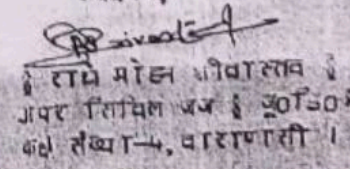 [ राधे मोहन श्रीवास्तव ]
अपर सिविल जज [ जू0डि0 ]
कक्ष संख्या-4, वाराणसी ।